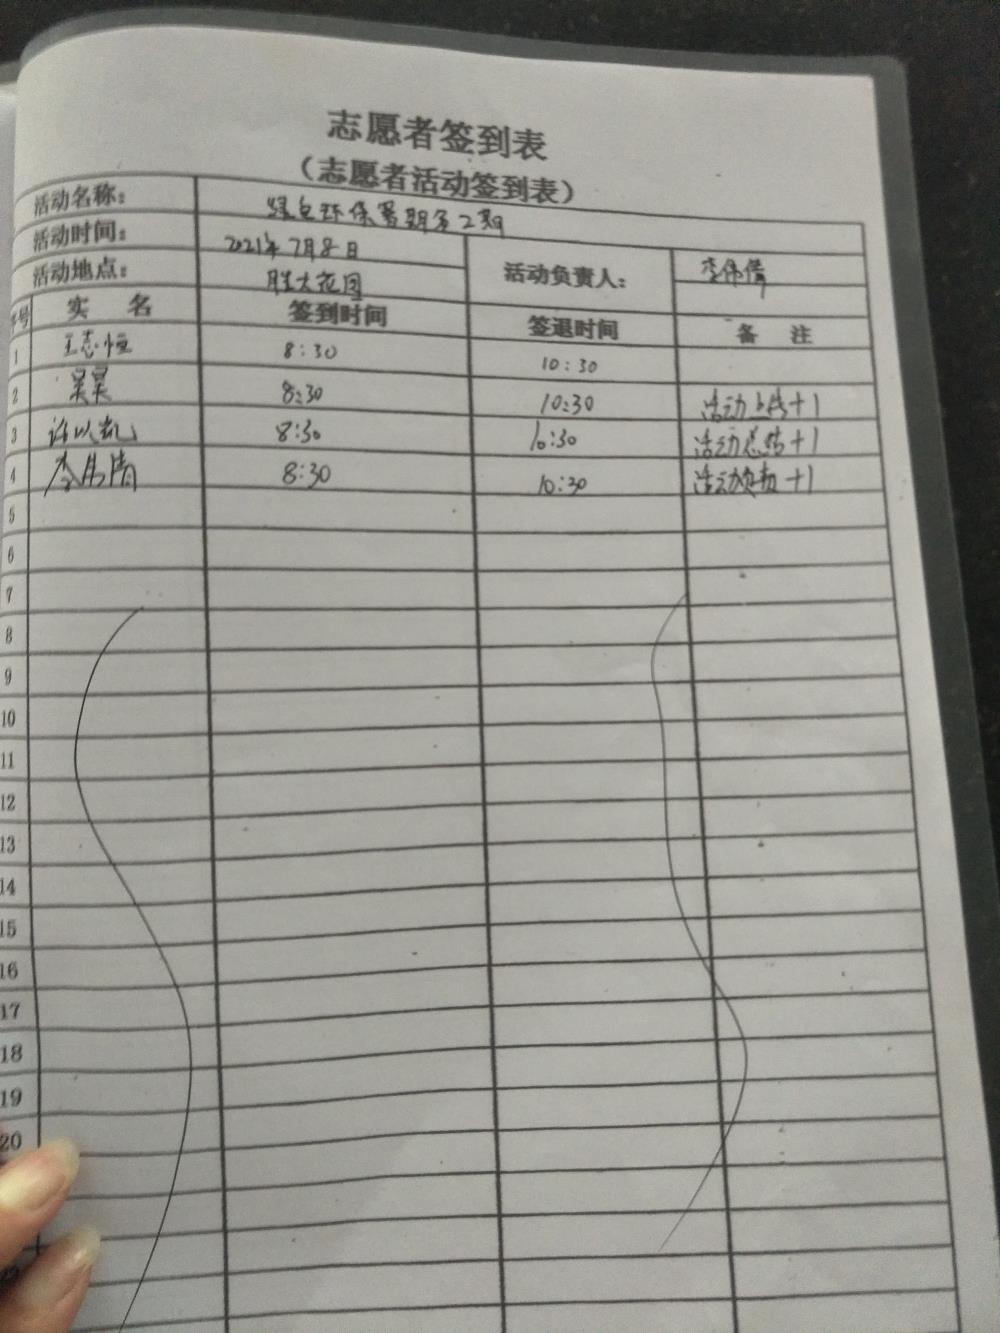 志愿者签到表
（志愿者活动签到表）
活动名称： 绿色环保暑期第2期
活动时间： 2021年7月8日 活动负责人： 李伟倩
活动地点： 胜大花园
序号 实 名 签到时间 签退时间 备 注
1 王志恒 8:30 10:30
2 昊昊 8:30 10:30 活动上传+1
3 许以凯 8:30 10:30 活动总结+1
4 李伟倩 8:30 10:30 活动负责+1
5
6
7
8
9
10
11
12
13
14
15
16
17
18
19
20